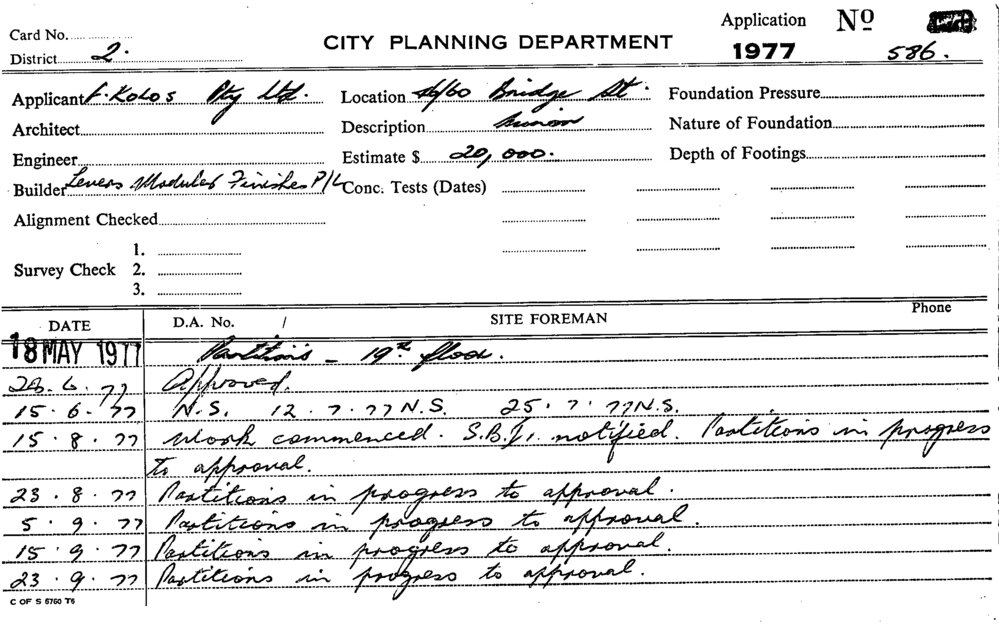 Card No.
District 2.
CITY PLANNING DEPARTMENT
Application No
1977 586.
Applicant F. Kolos Pty Ltd.
Location 60 Bridge St.
Foundation Pressure
Architect
Description
Nature of Foundation
Engineer
Estimate $ 20,000.
Depth of Footings
Builder Levers Modular Finishes P/L
Conc. Tests (Dates)
Alignment Checked
Survey Check 1.
2.
3.
DATE D.A. No. / SITE FOREMAN Phone
18 MAY 1977 Partitions - 19th floor.
6. 77 Approved.
15. 6. 77 N.S. 12. 7. 77 N.S. 25. 7. 77 N.S.
15. 8. 77 Work commenced. notified. Partitions in progress
to approval.
23. 8. 77 Partitions in progress to approval.
5. 9. 77 Partitions in progress to approval.
15. 9. 77 Partitions in progress to approval.
23. 9. 77 Partitions in progress to approval.
C OF S 5760 T6